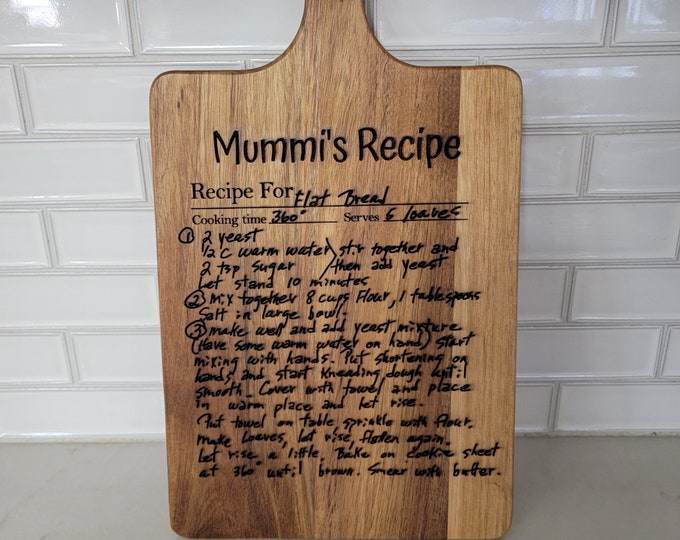 Mummi's Recipe
Recipe For Flat Bread
Cooking time 360° Serves 6 loaves
① 2 yeast
1/2 c warm water stir together and
2 tsp sugar then add yeast
Let stand 10 minutes
② Mix together 8 cups flour, 1 tablespoons
Salt in large bowl.
③ make well and add yeast mixture
(Have some warm water on hand) start
mixing with hands. Put shortening on
hands and start kneading dough until
smooth. Cover with towel and place
in warm place and let rise.
Put towel on table, sprinkle with flour.
make Loaves, let rise, flatten again.
Let rise a little. Bake on cookie sheet
at 360° until brown. Smear with butter.